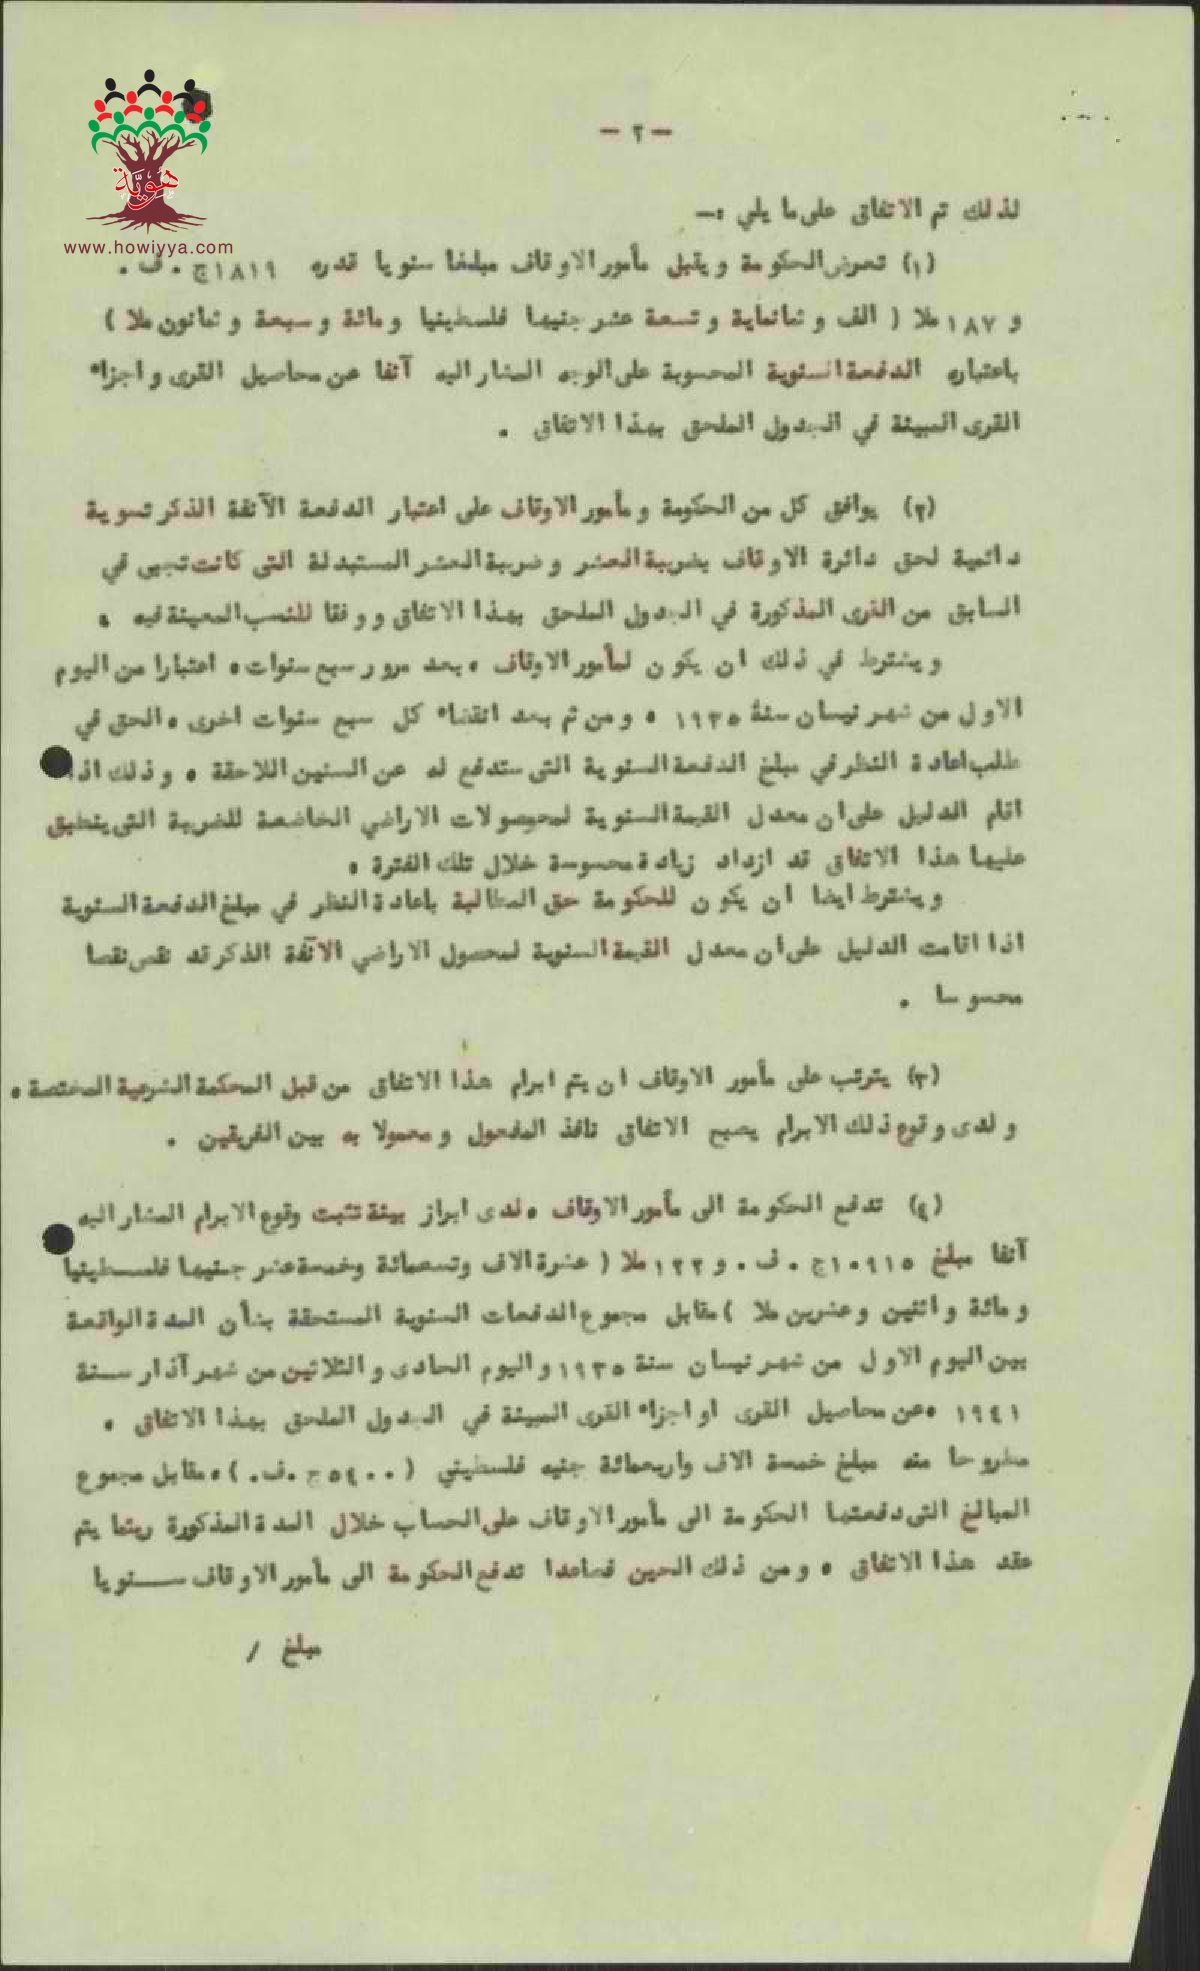 هويّة
www.howiyya.com
— ٢ —
لذلك تم الاتفاق على ما يلي :—
(١) تعرض الحكومة ويقبل مأمور الاوقاف مبلغا سنويا قدره ١٨١٩ج . ف .
و ١٨٧ ملا ( الف وثمانماية وتسعة عشر جنيها فلسطينيا ومائة وسبعة وثمانون ملا )
باعتباره الدفعة السنوية المحسوبة على الوجه المشار اليه آنفا عن محاصيل القرى واجزاء
القرى المبينة في الجدول الملحق بهذا الاتفاق .
(٢) يوافق كل من الحكومة ومأمور الاوقاف على اعتبار الدفعة الآنفة الذكر تسوية
دائمية لحق دائرة الاوقاف بضريبة العشر وضريبة العشر المستبدلة التى كانت تجبى في
السابق من القرى المذكورة في الجدول الملحق بهذا الاتفاق ووفقا للنسب المعينة فيه .
ويشترط في ذلك ان يكون لمأمور الاوقاف ، بعد مرور سبع سنوات ، اعتبارا من اليوم
الاول من شهر نيسان سنة ١٩٣٥ ، ومن ثم بعد انقضاء كل سبع سنوات اخرى ، الحق في
طلب اعادة النظر في مبلغ الدفعة السنوية التى ستدفع له عن السنين اللاحقة ، وذلك اذا
اقام الدليل على ان معدل القيمة السنوية لمحصولات الاراضي الخاضعة للضريبة التى ينطبق
عليها هذا الاتفاق قد ازداد زيادة محسوسة خلال تلك الفترة .
ويشترط ايضا ان يكون للحكومة حق المطالبة باعادة النظر في مبلغ الدفعة السنوية
اذا اقامت الدليل على ان معدل القيمة السنوية لمحصول الاراضي الآنفة الذكر قد نقص نقصا
محسوسا .
(٣) يترتب على مأمور الاوقاف ان يتم ابرام هذا الاتفاق من قبل المحكمة الشرعية المختصة .
ولدى وقوع ذلك الابرام يصبح الاتفاق نافذ المفعول ومعمولا به بين الفريقين .
(٤) تدفع الحكومة الى مأمور الاوقاف ، لدى ابراز بينة تثبت وقوع الابرام المشار اليه
آنفا مبلغ ١٠٩١٥ج . ف . و ١٢٢ ملا ( عشرة الاف وتسعمائة وخمسة عشر جنيها فلسطينيا
ومائة واثنين وعشرين ملا ) مقابل مجموع الدفعات السنوية المستحقة بشأن المدة الواقعة
بين اليوم الاول من شهر نيسان سنة ١٩٣٥ واليوم الحادى والثلاثين من شهر آذار سنة
١٩٤١ ، عن محاصيل القرى او اجزاء القرى المبينة في الجدول الملحق بهذا الاتفاق .
مطروحا منه مبلغ خمسة الاف واربعمائة جنيه فلسطيني ( ٥٤٠٠ج .ف. ) ، مقابل مجموع
المبالغ التى دفعتها الحكومة الى مأمور الاوقاف على الحساب خلال المدة المذكورة ريثما يتم
عقد هذا الاتفاق ، ومن ذلك الحين فصاعدا تدفع الحكومة الى مأمور الاوقاف سنويا
مبلغ /